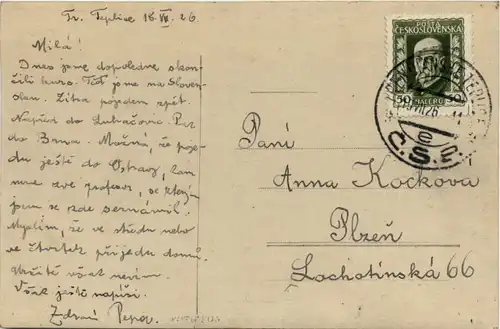 Tr. Teplice 18.VII.26
Milá!
Dnes jsme dopoledne skon-
čili kurs. Teď jsme na Sloven-
sku. Zítra pojedem zpět.
Napřed do Luhačovic. Pak
do Brna. Možná, že poje-
du ještě do Ostravy, kam
mne zve profesor, se kterým
jsem se zde seznámil.
Myslím, že ve středu nebo
ve čtvrtek přijedu domů.
Určitě však nevím.
Však ještě napíši.
Zdraví Pepa.
POŠTA
ČESKOSLOVENSKÁ
50 HALÉŘŮ
Č.S.R.
Paní
Anna Kočkova
Plzeň
Lochotínská 66